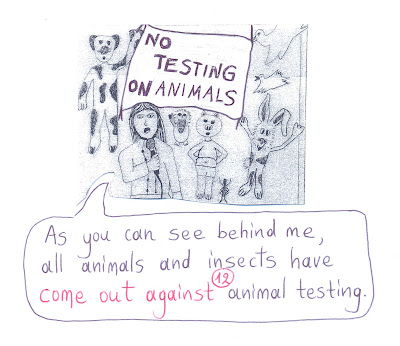 NO
TESTING
ON ANIMALS
As you can see behind me,
all animals and insects have
come out against 12 animal testing.